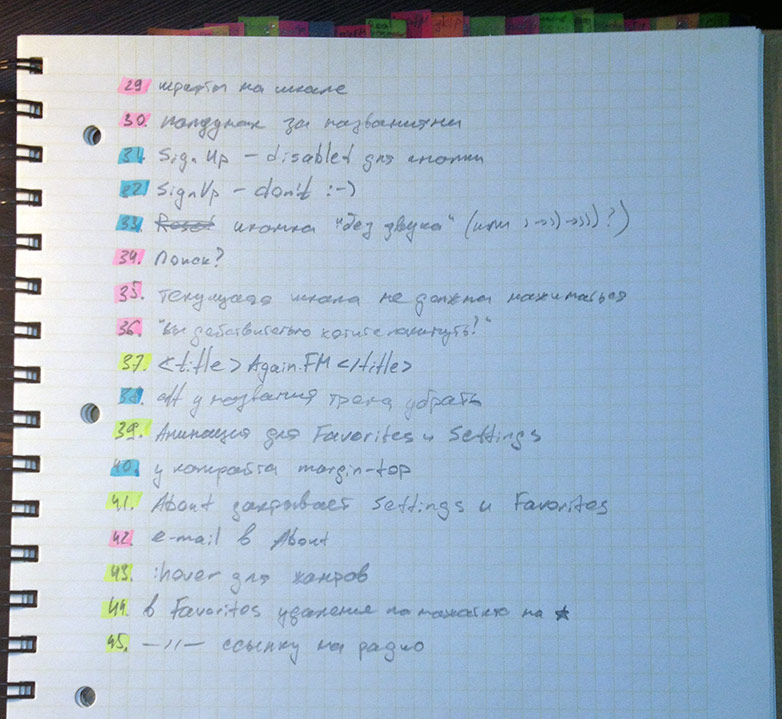 29 шрифты на шкале
30. подушка за названиями
31. Sign Up – disabled для кнопки
32. SignUp – don't :-)
33. Reset иконка "без звука" (или )→))→)))?)
34. Поиск?
35. текущая шкала не должна нажиматься
36. "вы действительно хотите покинуть?"
37. <title>Again.FM</title>
38. alt у названия трека убрать
39. Анимация для Favorites и Settings
40. у копирайта margin-top
41. About закрывает Settings и Favorites
42. e-mail в About
43. :hover для жанров
44. в Favorites удаление по нажатию на ★
45. —//— ссылку на радио